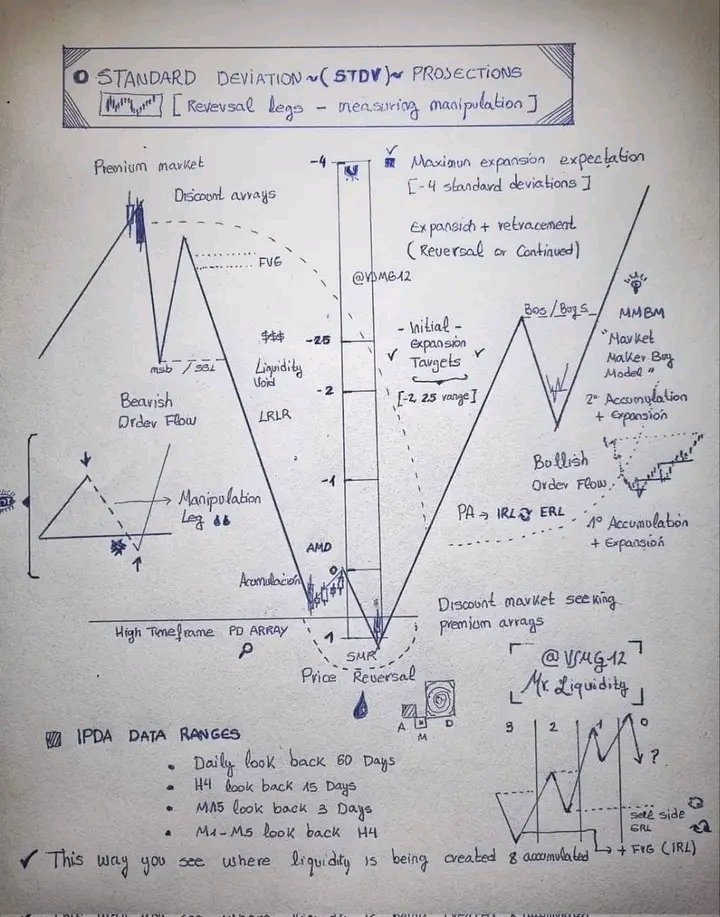 STANDARD DEVIATION ~(STDV)~ PROJECTIONS
[Reversal legs - measuring manipulation]
Premium market
Discount arrays
FVG
-4
Maximun expansion expectation
[-4 standard deviations]
Expansion + retracement
(Reversal or Continued)
@VSMG12
$$$
-25
Liquidity
Void
-2
LRLR
- Initial -
Expansion
Targets
[-2, 25 range]
Bos/
MMBM
"Market
Maker Buy
Model"
2° Accumulation
+ Expansion
msb / SBL
Bearish
Order Flow
Manipulation
Leg
-1
Bollish
Order Flow
PA → IRL ERL
1° Accumulation
+ Expansion
AMD
0
Acumulación
High Timeframe PD ARRAY
1
SMR
Price Reversal
Discount market seeking
premium arrays
@VSMG12
Mr. Liquidity
A
M
D
IPDA DATA RANGES
• Daily look back 60 Days
• H4 look back 15 Days
• M15 look back 3 Days
• M1-M5 look back H4
3 2 1 0
?
sell side
ERL
+ FVG (IRL)
✓ This way you see where liquidity is being created & accumulated